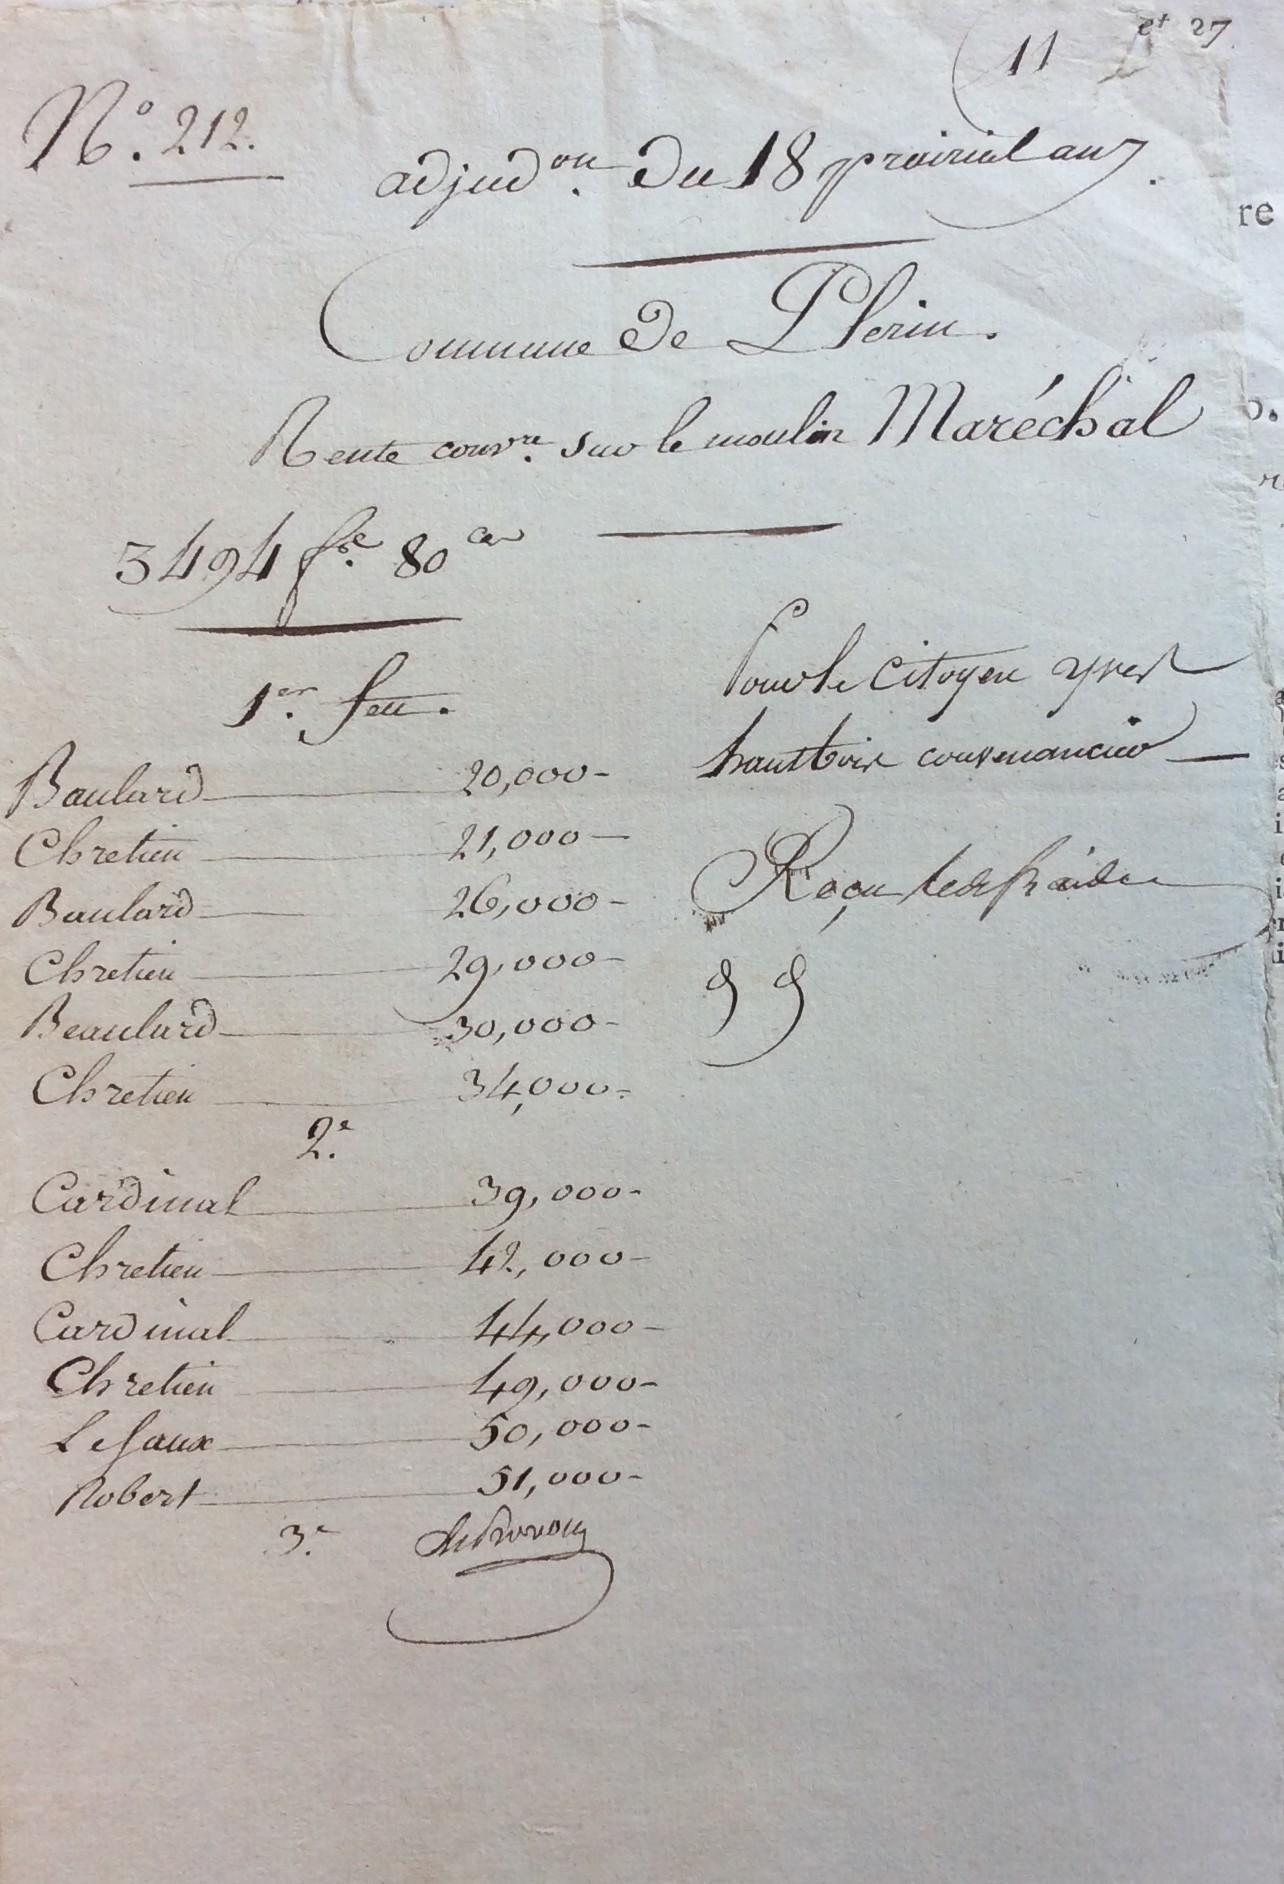 11 et 27
N.° 212.
adjud.on du 18 prairial an 7.
Commune de Plerin.
Rente conv.re sur le moulin Maréchal
3494 f. 80 ces
1.er feu.
Baulard 20,000-
Chretien 21,000-
Baulard 26,000-
Chretien 29,000-
Beaulard 30,000-
Chretien 34,000-
2.e
Cardinal 39,000-
Chretien 42,000-
Cardinal 44,000-
Chretien 49,000-
Lefaux 50,000-
Robert 51,000-
3.e
Pour le Citoyen yves
hautbois convenancier
Reçu
re